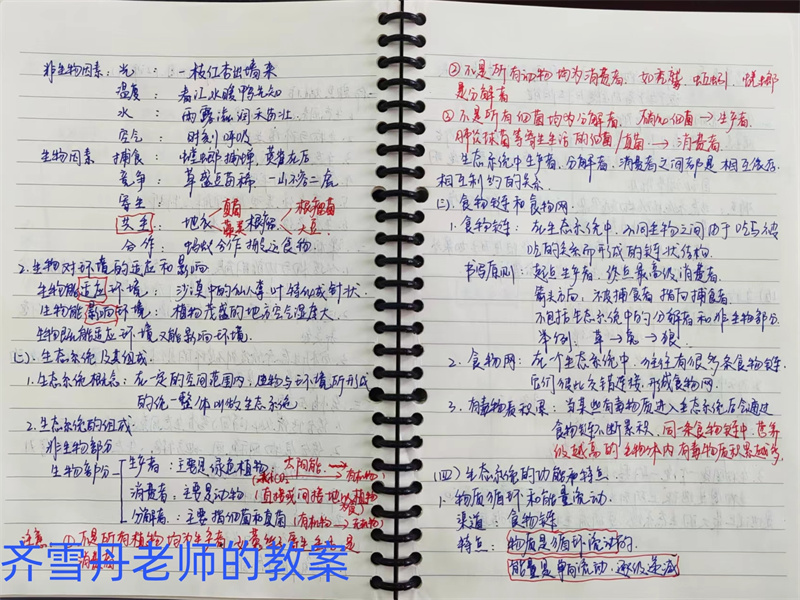 非生物因素：光：一枝红杏出墙来
温度：春江水暖鸭先知
水：雨露滋润禾苗壮
空气：时刻呼吸
生物因素 捕食：螳螂捕蝉，黄雀在后
竞争：草盛豆苗稀 一山不容二虎
寄生
共生：地衣 真菌 藻类 根瘤 根瘤菌 大豆
合作：蚂蚁合作搬运食物
2. 生物对环境的适应和影响
生物能适应环境：沙漠中的仙人掌叶特化成针状.
生物能影响环境：植物茂盛的地方空气湿度大
生物既能适应环境又能影响环境.
(二). 生态系统及其组成.
1. 生态系统概念：在一定的空间范围内，生物与环境所形成
的统一整体叫做生态系统
2. 生态系统的组成
非生物部分
生物部分 生产者：主要是绿色植物 太阳能
消费者：主要是动物（直接或间接地以植物
分解者：主要指细菌和真菌（有机物→无机物）
注意 ①不是所有植物均为生产者，
消费者
齐雪丹老师的教案
②不是所有动物均为消费者，如秃鹫 蚯蚓、蜣螂
是分解者
③不是所有细菌均为分解者. 硝化细菌→生产者.
肺炎球菌等寄生生活的细菌/真菌→消费者.
生态系统中生产者、分解者、消费者之间都是相互依存
相互制约的关系
(三). 食物链和食物网.
1. 食物链：在生态系统中，不同生物之间由于吃与被
吃的关系而形成的链状结构.
书写原则：起点生产者，终点最高级消费者.
箭头方向：不被捕食者指向捕食者.
不包括生态系统中的分解者和非生物部分
举例：草→兔→狼.
2. 食物网：在一个生态系统中，往往有很多条食物链
它们彼此交错连接，形成食物网.
3. 有毒物质积累：当某些有毒物质进入生态系统后会通过
食物链不断累积，同一条食物链中，营养
级越高的生物体内有毒物质积累越多.
(四) 生态系统的功能和特点
1. 物质循环和能量流动.
渠道：食物链
特点：物质是循环流动的.
能量是单向流动、逐级递减